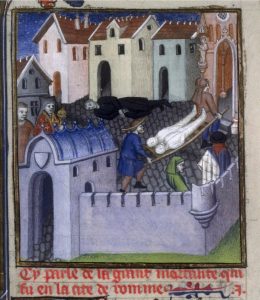 Cy parle de la grant mortalite qui
fu en la cite de romme